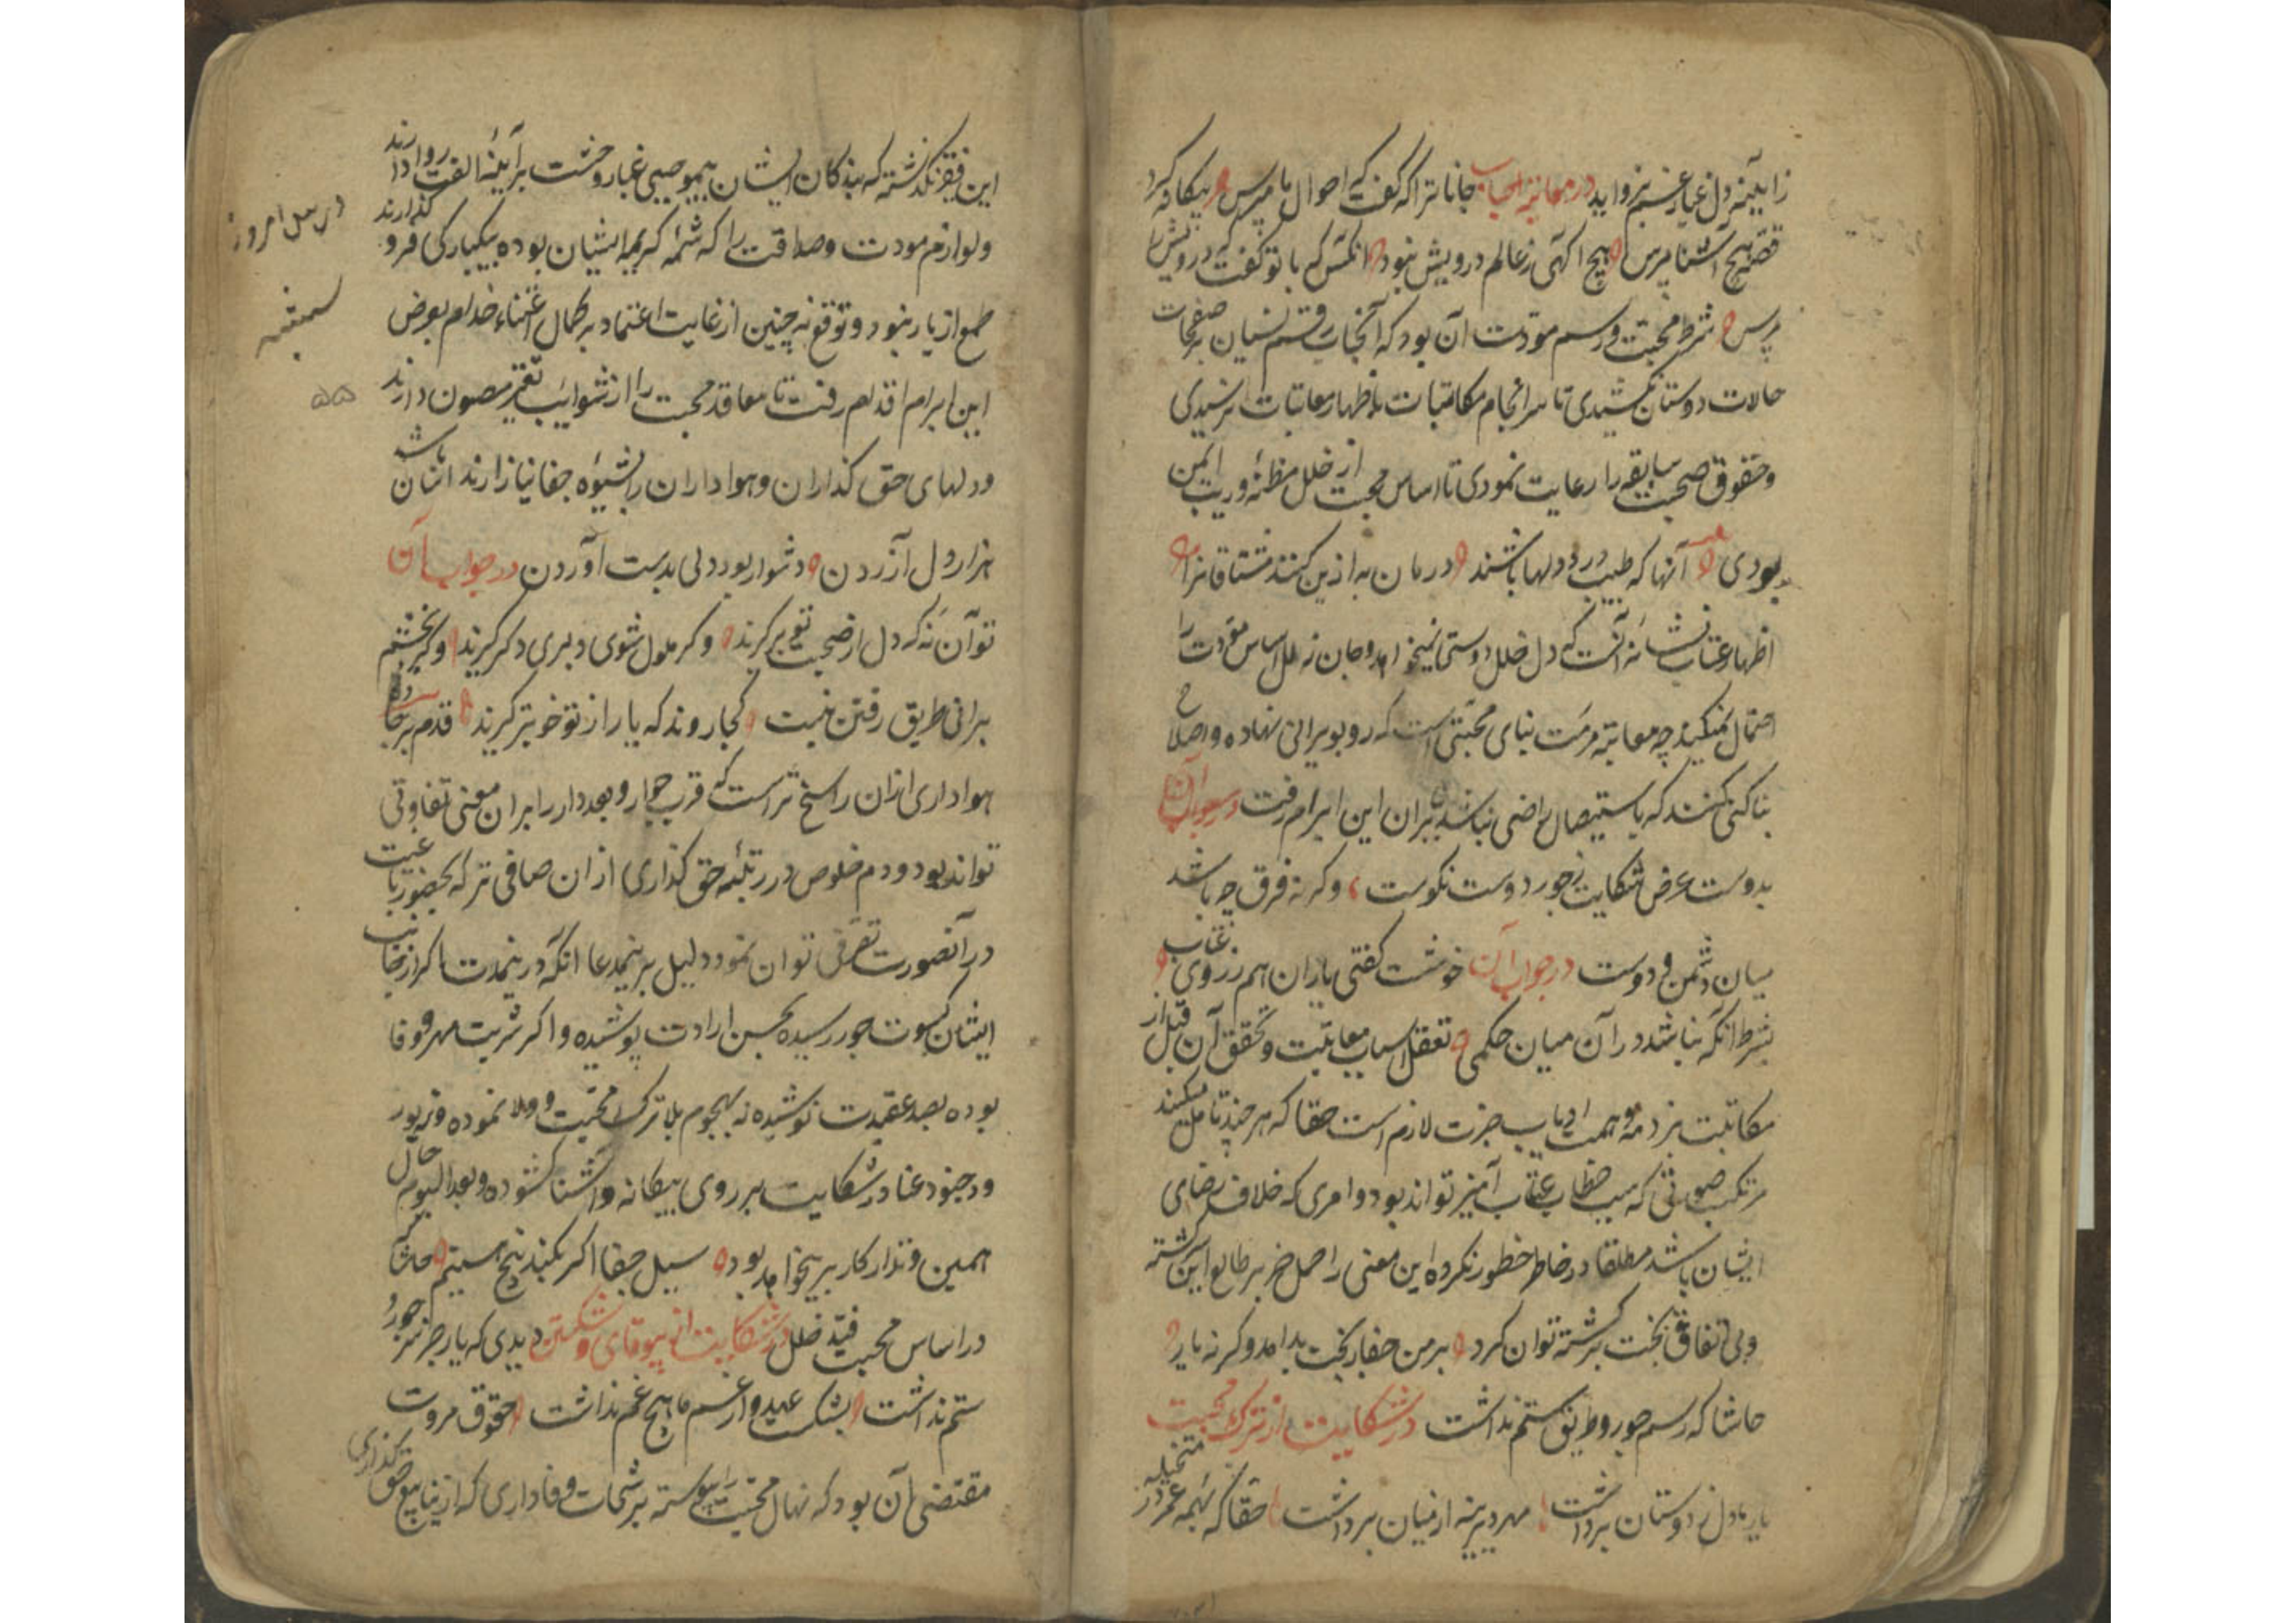 ز آیینه دل غبار غم بزداید در معاتبه احباب جانا ترا که گفت که احوال ما مپرس بیگانه گرد
قصه هیچ آشنا مپرس هیچ آگهی ز عالم درویش نبود آنکس که با تو گفت که درویش را
مپرس شرط محبت و رسم مودت آن بود که آنجناب رقم نسیان بر صفحات
حالات دوستان نکشیدی تا سرانجام مکاتبات باظهار معاتبات نرسیدی
و حقوق صحبت سابقه را رعایت نمودی تا اساس محبت از خلل مظنه و ریب ایمن
بودی آنها که طبیب درد دلها باشند درمان به ازین کنند مشتاقانرا
اظهار عتاب نشانه آنست که دل خلل دوستی نمیخواهد و جان تزلزل اساس مودت را
احتمال نمیکند چه معاتبه مرمت بنای محبتی است که رو بویرانی نهاده و اصلاح
بنا کسی کند که باستیصال راضی نباشد بنابران این ابرام رفت در جواب آن
بدوست عرض شکایت ز جور دوست نکوست وگر نه فرق چه باشد
میان دشمن و دوست در جواب آن خوشست گفتی یاران هم ز روی عتاب
بشرط آنکه نباشد در آن میان حکمی تعقل اسباب معاتبت و تحقق آن قبل از
مکاتبت بر ذمه همت ارباب خبرت لازم است حقا که هر چند تامل میکند
مرتکب صورتی که سبب خطاب عتاب آمیز تواند بود و امری که خلاف رضای
ایشان باشد مطلقا در خاطر خطور نکرده این معنی را حمل جز بر طالع این گشته
و بی اتفاقی بخت برگشته توان کرد بر من جفا ز بخت بد آمد وگر نه یار
حاشا که رسم جور و طریق ستم نداشت در شکایت از ترک محبت
یار ما دل ز دوستان برداشت مهر دیرینه از میان برداشت حقا که بهمه عمر در متخیله
این فقیر نگذشته که بندگان ایشان بهیچ موجبی غبار وحشت بر آیینه الفت روا دارند
و لوازم مودت و صداقت را که شیمه کریمه ایشان بوده بیکبارگی فرو گذارند
طمع از یار نبود و توقع نه چنین از غایت اعتماد بر کمال اعتناء خدام بعرض
این ابرام اقدام رفت تا معاقد محبت را از شوایب تغیر مصون دارند
و دلهای حق گذاران و هواداران را بشیوه جفا نیازارند آسان باشد
هزار دل آزردن دشوار بود دلی بدست آوردن در جواب آن
تو آن نه که دل از صحبت تو برگیرند وگر ملول شوی دلبری دگر گیرند وگر بخشم
برانی طریق رفتن نیست کجا روند که یار از تو خوبتر گیرند قدم بر جاده
هواداری ازان راسخ تر است که قرب جوار و بعد دار را بران معنی تفاوتی
تواند بود و دم خلوص در رتبه حق گذاری ازان صافی تر که بحضور یا غیبت
در آنصورت تفرقی توان نمود و دلیل برین مدعا آنکه درین مدت اگر از جانب
ایشان کسوت جور رسیده بحسن ارادت پوشیده و اگر شربت مهر و وفا
بوده بصد عقیدت نوشیده نه بهجوم بلا ترک محبت و ولا نموده و نه بورود
و جنود عنا در شکایت بر روی بیگانه و آشنا گشوده و بعد الیوم حال
همین و مدار کار برین خواهد بود سیل جفا اگر بکند بیخ هستیم حاشا که
در اساس محبت فتد خلل در شکایت از بیوفایی و شکستن دیدی که یار جز سر جور و
ستم نداشت بشکست عهد و از غم ما هیچ غم نداشت حقوق مروت
مقتضی آن بود که نهال محبت را پیوسته برشحات وفاداری که از ینابیع حق گذاری
درس امروز
سه شنبه
۵۵